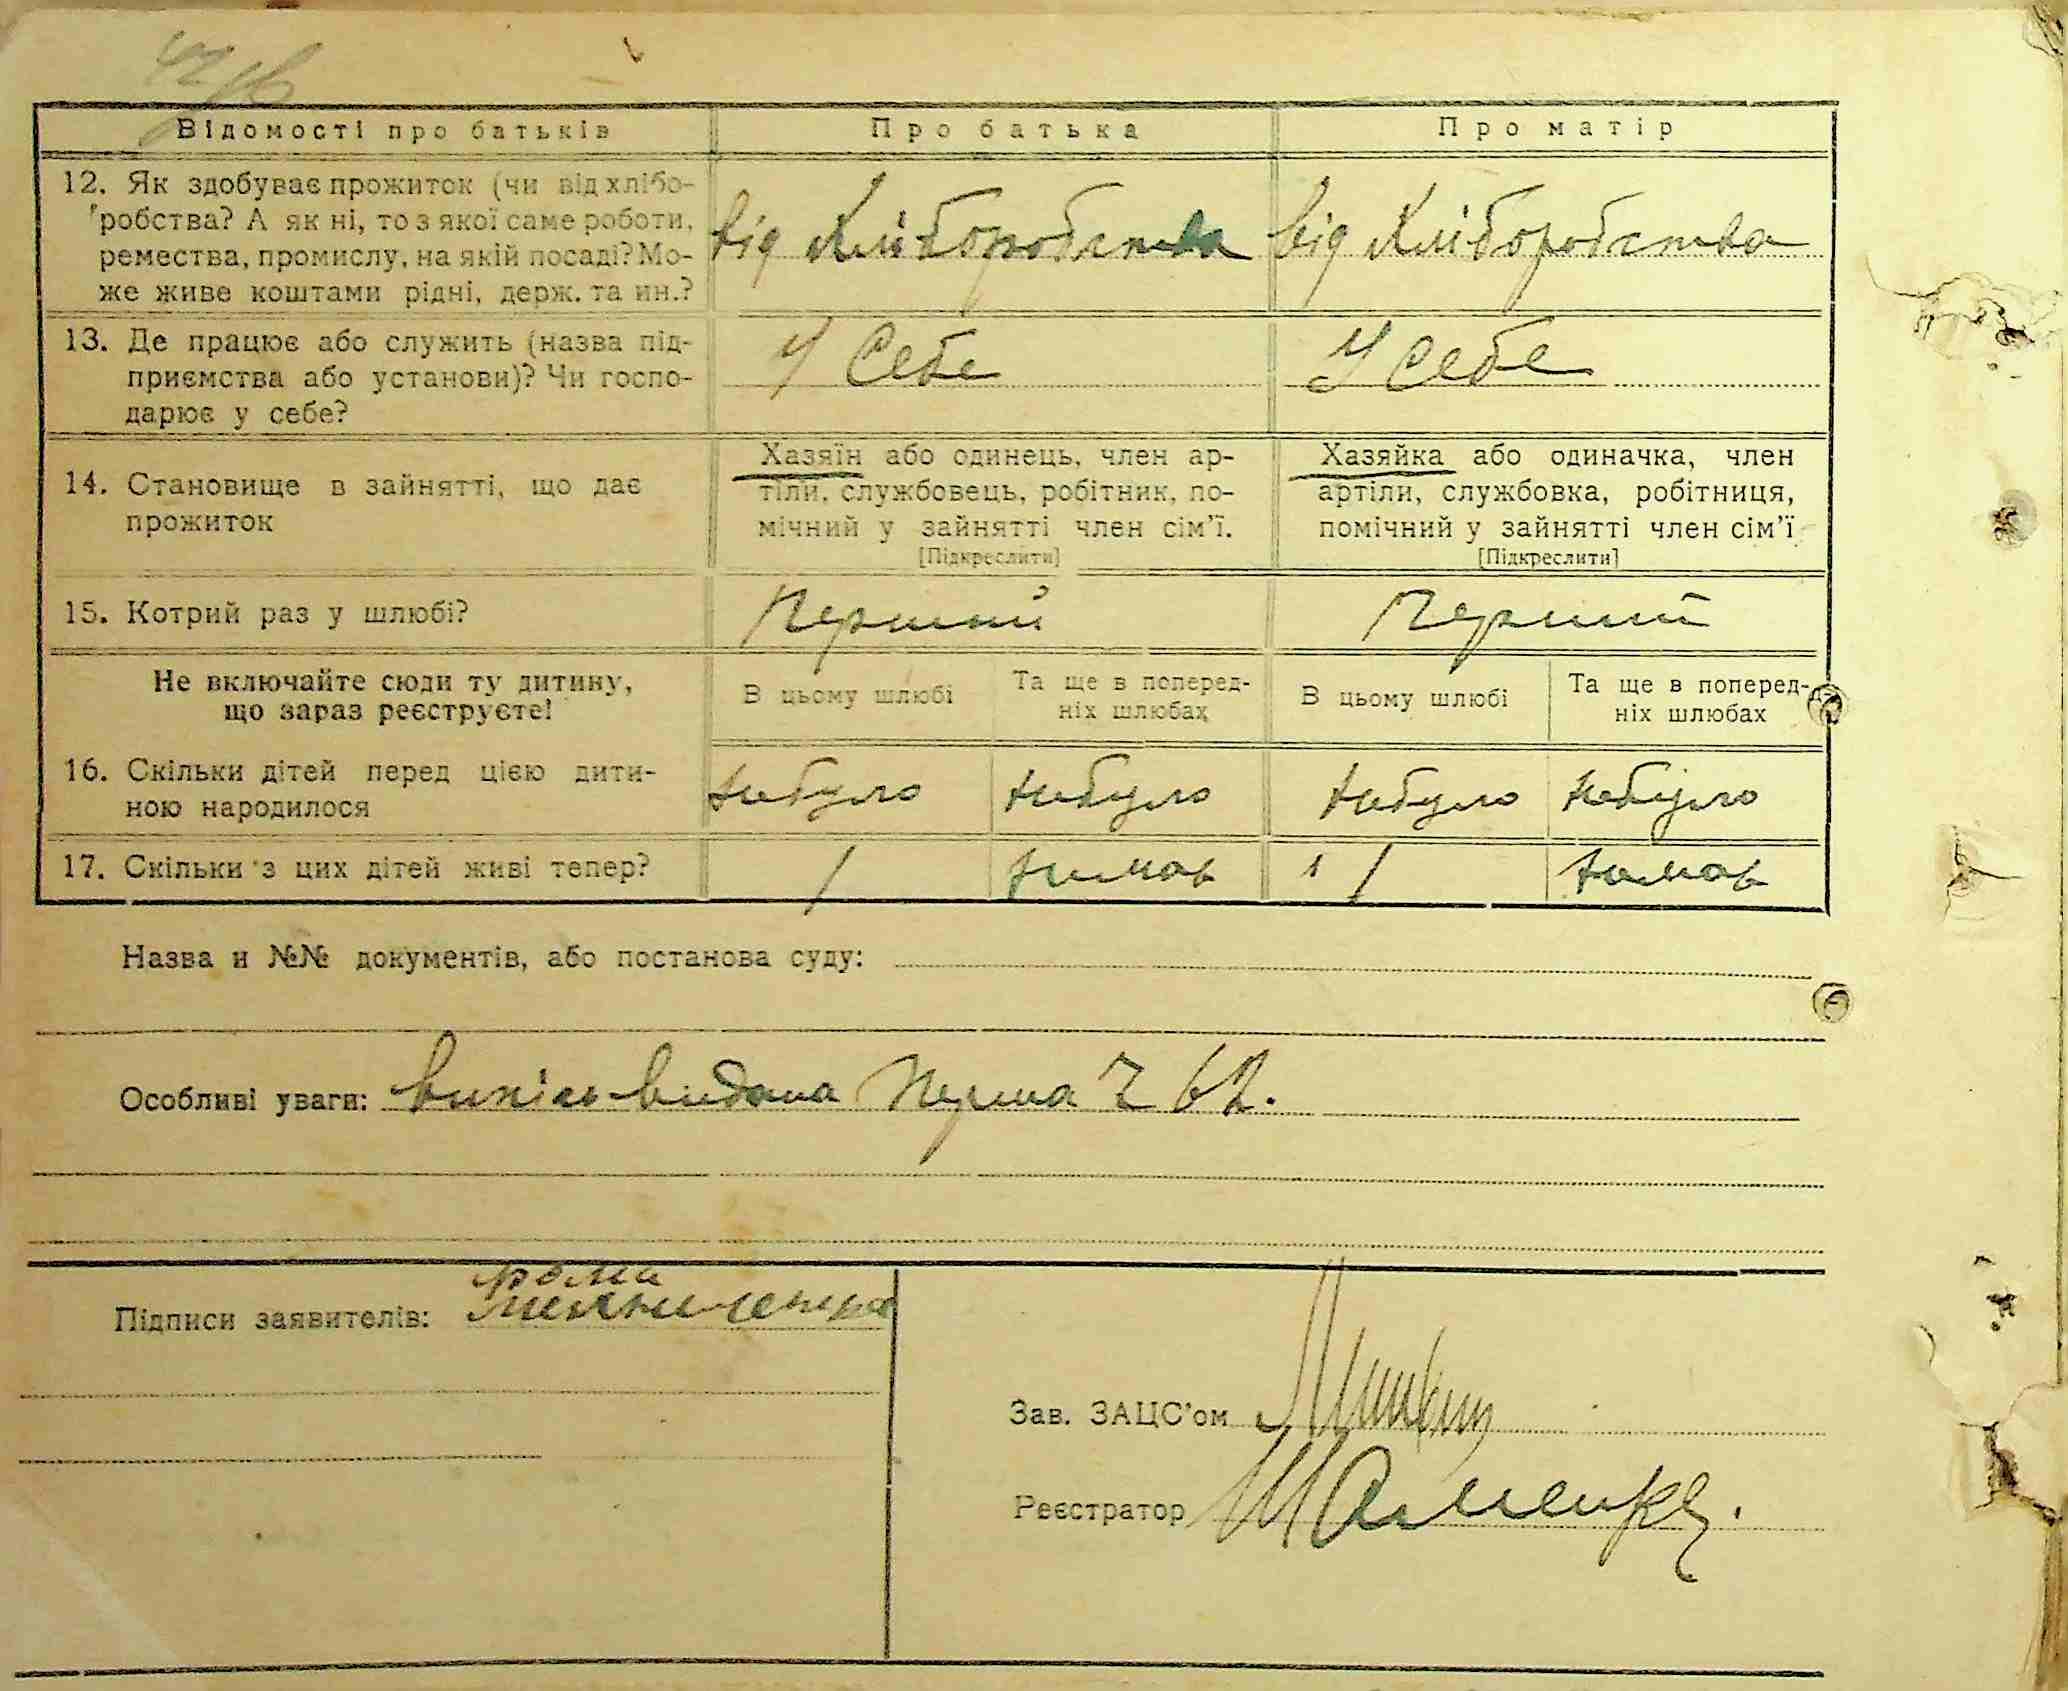 Відомості про батьків
Про батька
Про матір
12. Як здобуває прожиток (чи від хлібо-
робства? А як ні, то з якої саме роботи,
ремества, промислу, на якій посаді? Мо-
же живе коштами рідні, держ. та ин.?
від хліборобства
від хліборобства
13. Де працює або служить (назва під-
приємства або установи)? Чи госпо-
дарює у себе?
У Себе
У Себе
14. Становище в зайнятті, що дає
прожиток
Хазяїн або одинець, член ар-
тіли, службовець, робітник, по-
мічний у зайнятті член сім’ї.
[Підкреслити]
Хазяйка або одиначка, член
артіли, службовка, робітниця,
помічний у зайнятті член сім’ї
[Підкреслити]
15. Котрий раз у шлюбі?
Перший
Перший
Не включайте сюди ту дитину,
що зараз реєструєте!
В цьому шлюбі
Та ще в поперед-
ніх шлюбах
В цьому шлюбі
Та ще в поперед-
ніх шлюбах
16. Скільки дітей перед цією дити-
ною народилося
небуло
небуло
небуло
небуло
17. Скільки з цих дітей живі тепер?
1
немає
1
немає
Назва и №№ документів, або постанова суду:
Особливі уваги: випісь видана перша
Підписи заявителів:
Зав. ЗАЦС’ом
Реєстратор